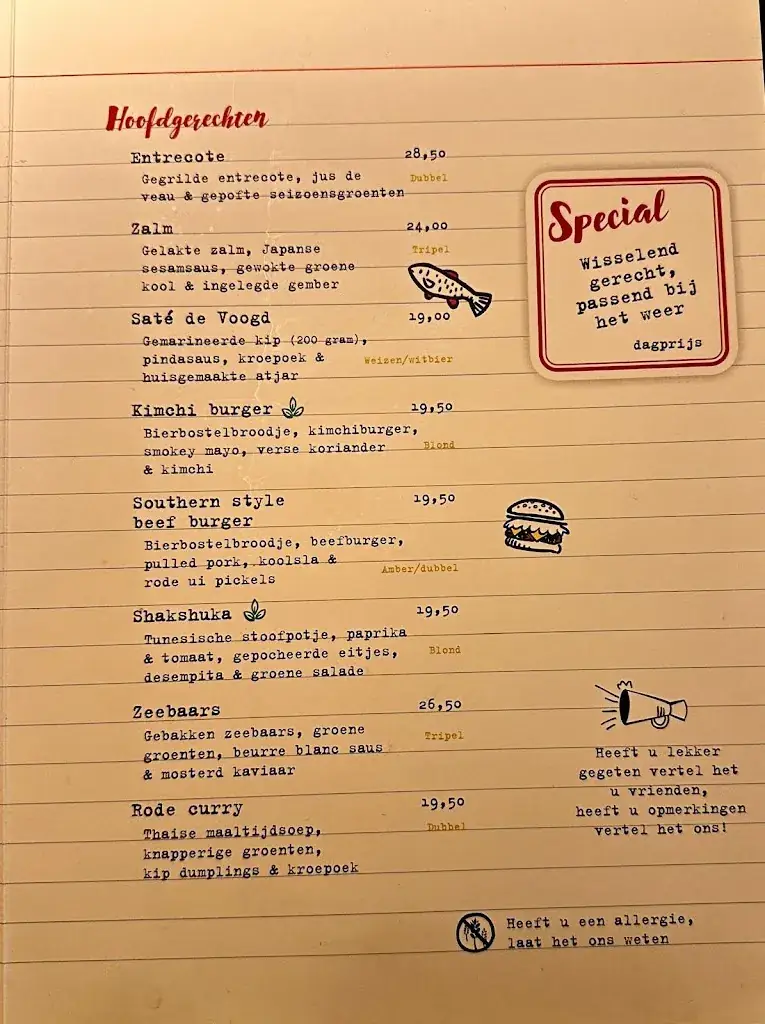 Hoofdgerechten
Entrecote 28,50
Gegrilde entrecote, jus de Dubbel
veau & gepofte seizoensgroenten
Zalm 24,00
Gelakte zalm, Japanse Tripel
sesamsaus, gewokte groene
kool & ingelegde gember
Saté de Voogd 19,00
Gemarineerde kip (200 gram),
pindasaus, kroepoek & Weizen/witbier
huisgemaakte atjar
Kimchi burger 19,50
Bierbostelbroodje, kimchiburger,
smokey mayo, verse koriander Blond
& kimchi
Southern style 19,50
beef burger
Bierbostelbroodje, beefburger,
pulled pork, koolsla & Amber/dubbel
rode ui pickels
Shakshuka 19,50
Tunesische stoofpotje, paprika
& tomaat, gepocheerde eitjes, Blond
desempita & groene salade
Zeebaars 26,50
Gebakken zeebaars, groene Tripel
groenten, beurre blanc saus
& mosterd kaviaar
Rode curry 19,50
Thaise maaltijdsoep, Dubbel
knapperige groenten,
kip dumplings & kroepoek
Special
Wisselend
gerecht,
passend bij
het weer
dagprijs
Heeft u lekker
gegeten vertel het
u vrienden,
heeft u opmerkingen
vertel het ons!
Heeft u een allergie,
laat het ons weten